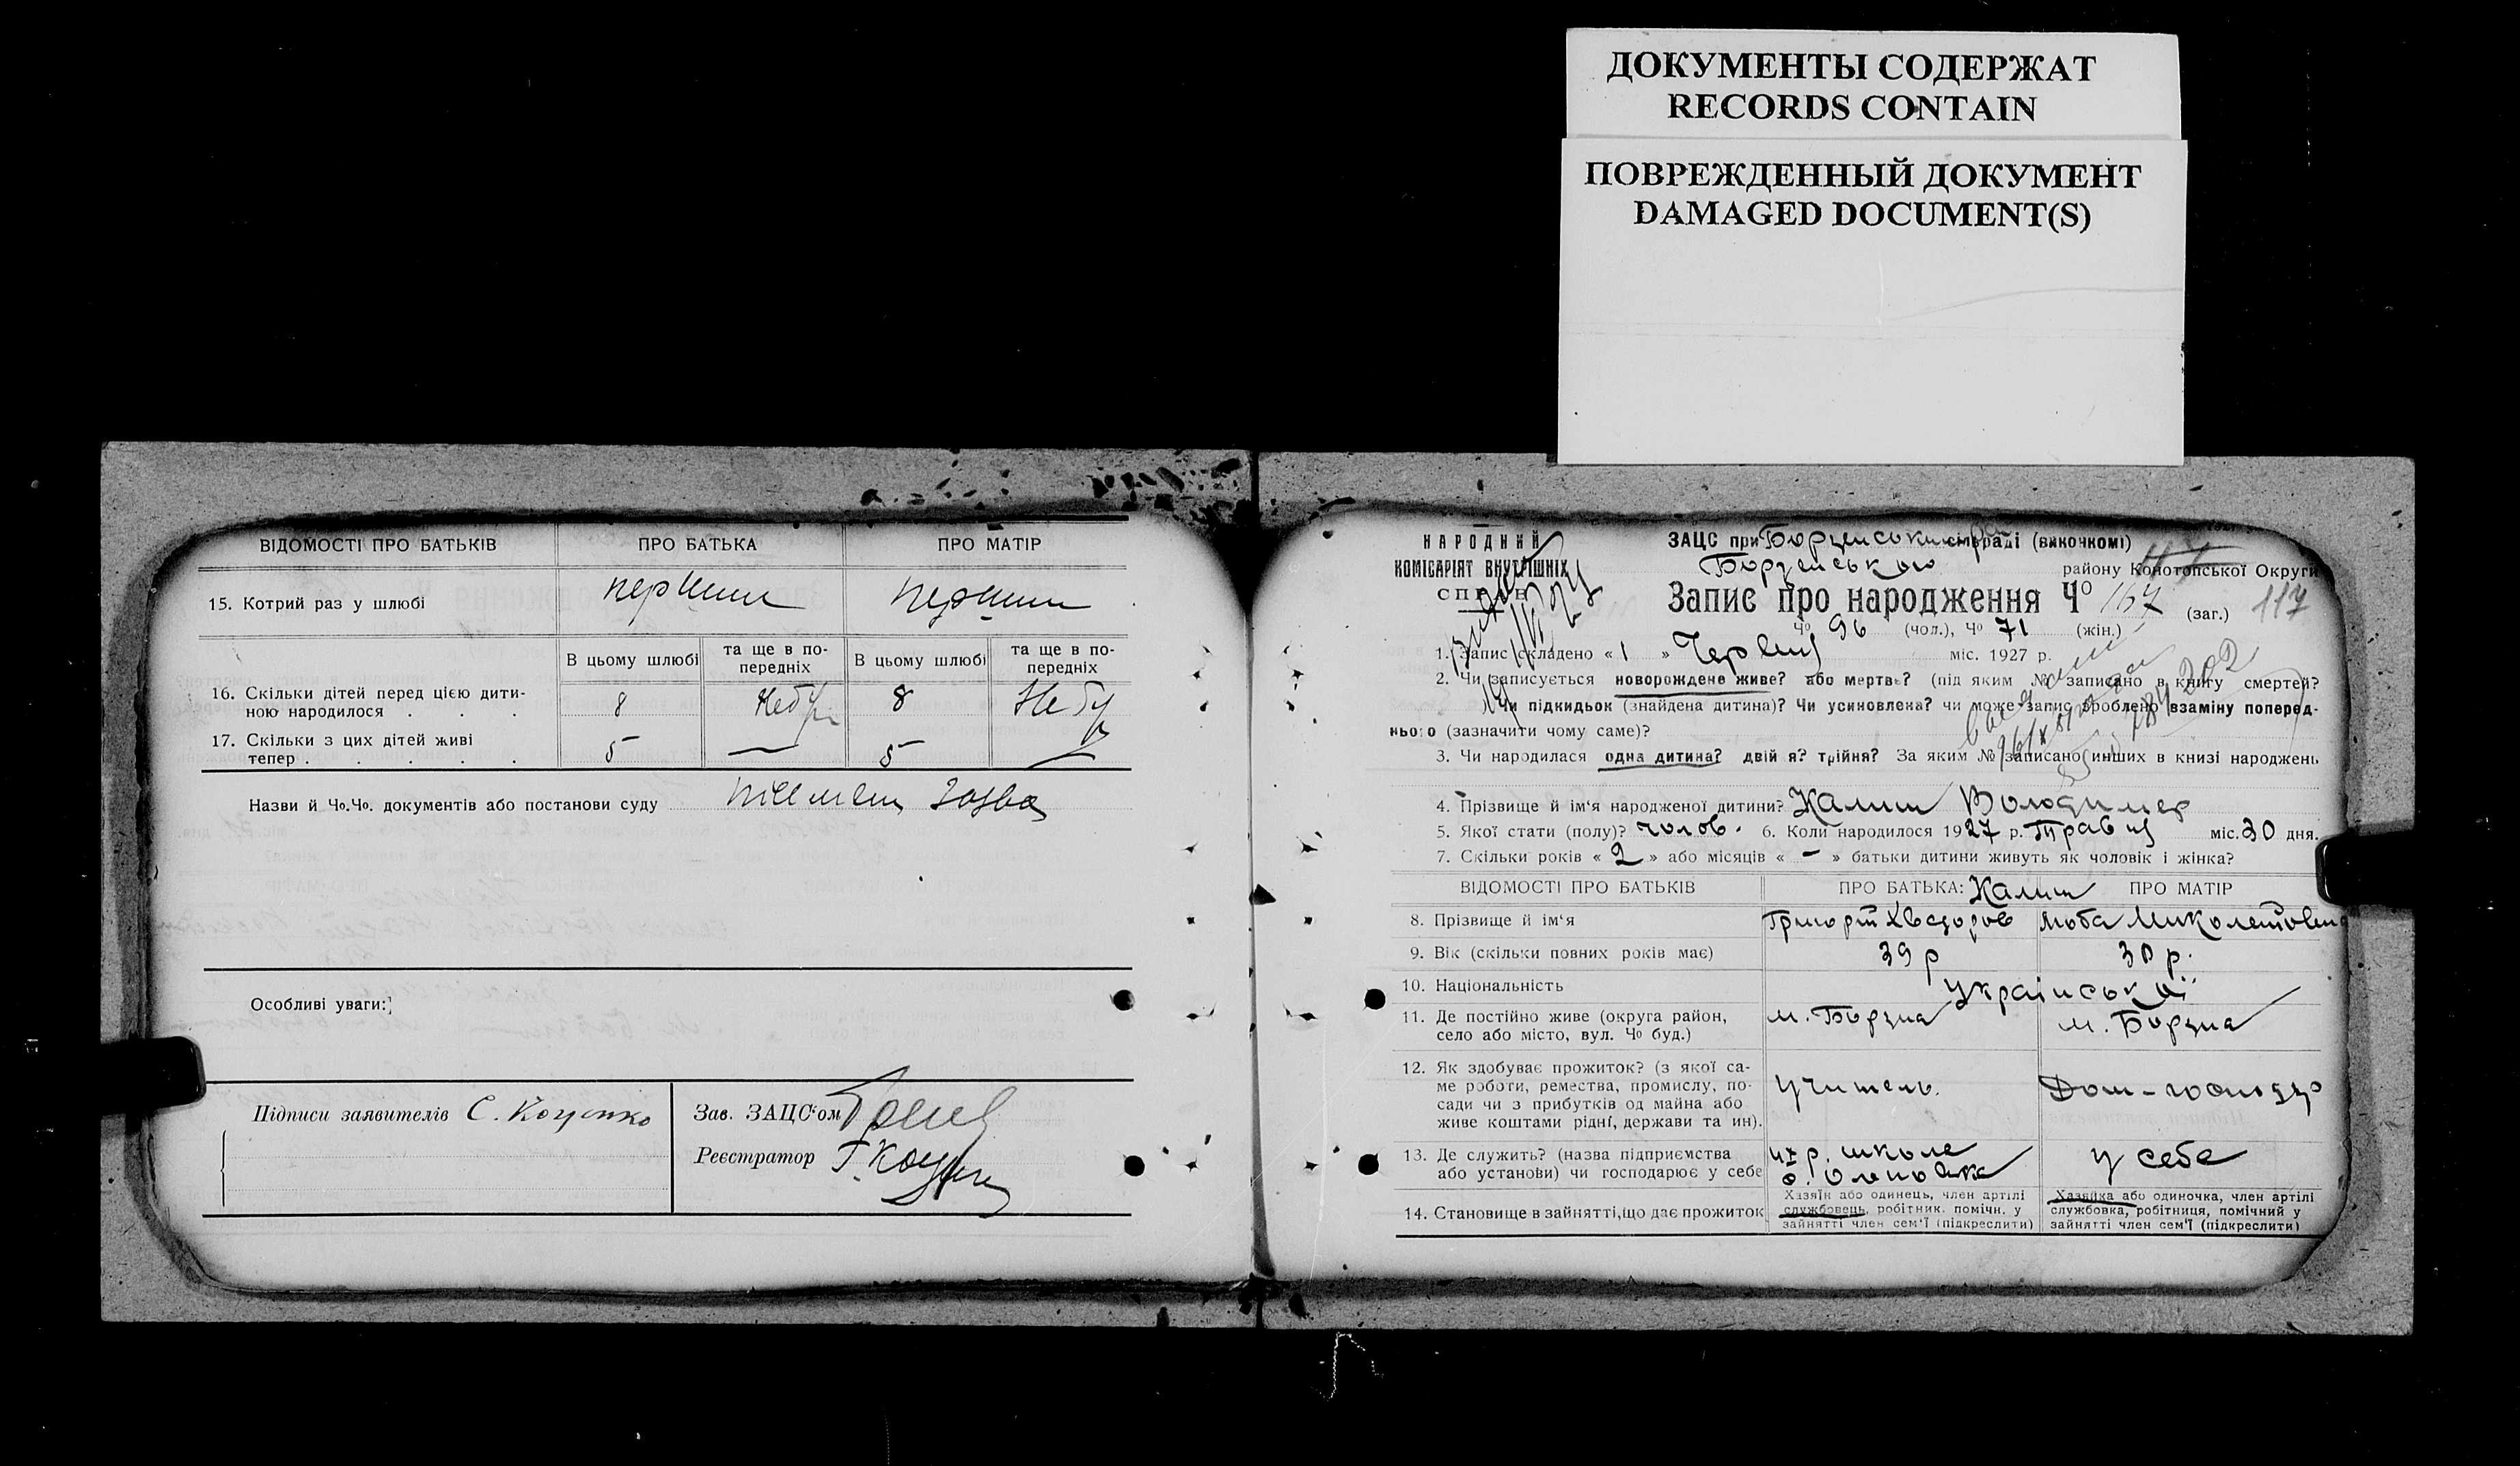 ДОКУМЕНТЫ СОДЕРЖАТ
RECORDS CONTAIN
ПОВРЕЖДЕННЫЙ ДОКУМЕНТ
DAMAGED DOCUMENT(S)
ВІДОМОСТІ ПРО БАТЬКІВ ПРО БАТЬКА ПРО МАТІР
15. Котрий раз у шлюбі перший перший
В цьому шлюбі та ще в по- передніх В цьому шлюбі та ще в по- передніх
16. Скільки дітей перед цією дити-
ною народилося . . . 8 8
17. Скільки з цих дітей живі
тепер . . . . . 5 — 5 —
Назви й Чо.Чо. документів або постанови суду
Особливі уваги:
Підписи заявителів С. Коценко Зав. ЗАЦС'ом
Реєстратор Г.
НАРОДНИЙ
КОМІСАРІЯТ ВНУТРІШНІХ
СПРАВ
ЗАЦС при Борзенському раді (викочкомі)
Борзенського району Конотопської Округи
Запис про народження Чо 167 (заг.) 117
Чо 96 (чол.), Чо 71 (жін.)
1. Запис складено «1» Червня міс. 1927 р.
2. Чи записується новорождене живе? або мертве? (під яким № записано в книгу смертей?
Чи підкидьок (знайдена дитина)? Чи усиновлена? чи може запис зроблено взаміну поперед-
нього (зазначити чому саме)?
3. Чи народилася одна дитина? двій я? трійня? За яким № записано инших в книзі народжень
4. Прізвище й ім'я народженої дитини? Калиш Володимер
5. Якої стати (полу)? чолов. 6. Коли народилося 1927 р. Травня міс. 30 дня.
7. Скільки років « 2 » або місяців « – » батьки дитини живуть як чоловік і жінка?
ВІДОМОСТІ ПРО БАТЬКІВ ПРО БАТЬКА: Калиш ПРО МАТІР
8. Прізвище й ім'я Григорій Хведоров Люба
9. Вік (скільки повних років має) 39 р 30 р.
10. Національність Української
11. Де постійно живе (округа район,
село або місто, вул. Чо буд.) м. Борзна м. Борзна
12. Як здобуває прожиток? (з якої са-
ме роботи, ремества, промислу, по-
сади чи з прибутків од майна або
живе коштами рідні, держави та ин). учитель. Дом-господар
13. Де служить? (назва підприємства
або установи) чи господарює у себе школе у себе
14. Становище в зайнятті, що дає прожиток
Хазяїн або одинець, член артілі
службовець, робітник. помічн. у
зайнятті член сем'ї (підкреслити)
Хазяйка або одиночка, член артілі
службовка, робітниця, помічний у
зайнятті член сем'ї (підкреслити)